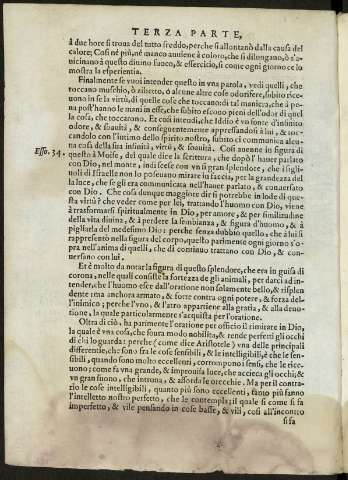 TERZA PARTE,
à due hore si troua del tutto freddo, perche si allontanò dalla causa del
calore; Così nè più, nè manco auuiene à coloro, che si dilungano, ò s'a-
uicinano à questo diuino fuoco, & essercitio, sì come ogni giorno ce lo
mostra la esperientia.
Finalmente se vuoi intender questo in vna parola, vedi quelli, che
toccano muschio, ò zibetto, ò alcune altre cose odorifere, subito rice-
uono in se la virtù, di quelle cose che toccano: di tal maniera, che à pe-
na pongono le mani in esse, che subito escono pieni dell'odor di quel
la cosa, che toccarono. Et così intendi, che Iddio è vn fonte d'infinito
odore, & soauità, & conseguentemente appressandosi à lui, & toc-
candolo con l'intimo dello spirito nostro, subito ci communica alcu-
na cosa della sua infinità, virtù, & soauità. Così auenne in figura di
Esso. 34. questo à Moise, del quale dice la scrittura, che dopò l'hauer parlato
con Dio, nel monte, indi scese con vn sì gran splendore, che i figli-
uoli di Israelle non lo poteuano mirare in faccia, per la grandezza del
la luce, che se gli era communicata nell'hauer parlato, & conuersato
con Dio. Che cosa dunque maggior dir si potrebbe in lode di que-
sta virtù? che veder come per lei, trattando l'huomo con Dio, viene
à trasformarsi spiritualmente in Dio, per amore, & per similitudine
della vita diuina, & à perdere la sembianza, & figura d'huomo, & à
pigliarla del medesimo Dio: perche senza dubbio quello, che à lui si
rappresentò nella figura del corpo, questo parimente ogni giorno s'o-
pra nell'anima di quelli, che di continuo trattano con Dio, & con-
uersano con lui.
Et è molto da notar la figura di questo splendore, che era in guisa di
corona, nelle quali consiste la fortezza de gli animali, per darci ad in-
tender, che l'huomo esce dall'oratione non solamente bello, & risplen
dente ma anchora armato, & forte contra ogni potere, & forza del-
l'inimico; perche l'vno, & l'altro appartiene alla gratia, & alla deuo-
tione, la quale particolarmente s'acquista per l'oratione.
Oltra di ciò, ha parimente l'oratione per officio il rimirare in Dio,
la quale è vna cosa, che soura modo nobilita, & rende perfetti gli occhi
di chi lo guarda: perche (come dice Aristotele) vna delle principali
differentie, che sono fra le cose sensibili, & le intelligibili, è che le sen-
sibili, quando sono molto eccellenti, corrompono i sensi, che le rice-
uono; come fa vna grande, & improuisa luce, che accieca gli occhi; &
vn gran suono, che introna, & assorda le orecchie. Ma per il contra-
rio le cose intelligibili, quanto più sono eccellenti, tanto più fanno
l'intelletto nostro perfetto, che le contempla; il quale sì come si fa
imperfetto, & vile pensando in cose basse, & vili, così all'incontro
si fa